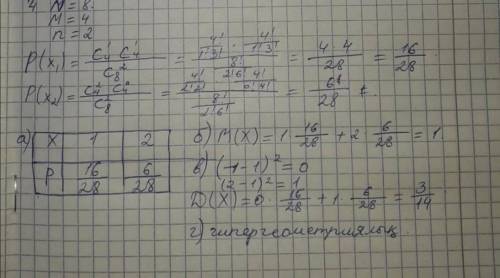 4 N = 8
M = 4
n = 2
P(x₁) = C₄¹ C₄¹ / C₈² = (4!/1!3! · 4!/1!3!) / (8!/2!6!) = 4·4/28 = 16/28
P(x₂) = C₄² C₄⁰ / C₈² = (4!/2!2! · 4!/0!4!) / (8!/2!6!) = 6·1/28 t.
а) X 1 2
P 16/28 6/28
б) M(X) = 1 · 16/28 + 2 · 6/28 = 1.
в) (1-1)² = 0
(2-1)² = 1
D(X) = 0 · 16/28 + 1 · 6/28 = 3/14
г) гипергеометриялық